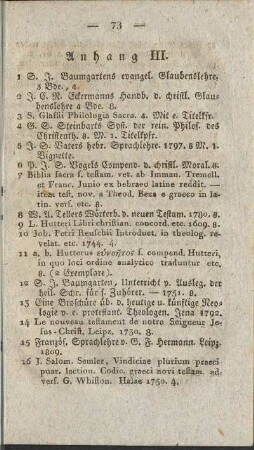 — 73 —
Anhang III.
1 S. J. Baumgartens evangel. Glaubenslehre.
3 Bde., 4.
2 J. C. R. Eckermanns Handb. d. christl. Glau-
benslehre 4 Bde. 8.
3 S. Glassii Philologia Sacra. 4. Mit e. Titelkfr.
4 G. S. Steinbarts Syst. der rein. Philos. des
Christenth. 8. M. 1. Titelkpfr.
5 J. S. Vaters hebr. Sprachlehre. 1797. 8 M. 1.
Vignette.
6 P. J. S. Vogels Compend. d. christl. Moral. 8.
7 Biblia sacra s. testam. vet. ab Imman. Tremell.
et Franc. Junio ex hebraeo latine reddit. —
item test. nov. a Theod. Beza e graeco in la-
tin. vers. etc. 8.
8 W. A. Tellers Wörterb. d. neuen Testam. 1780. 8.
9 L. Hutteri Libri christian. concord. etc. 1609. 8.
10 Joh. Petri Reuschii Introduct. in theolog. re-
velat. etc. 1744. 4.
11 a. b. Hutterus ενκνητος s. compend. Hutteri,
in quo loci ordine analytico traduntur etc.
8. (2 Exemplare).
12 S. J. Baumgarten, Unterricht v. Ausleg. der
heil. Schr. für s. Zuhörer. — 1751. 8.
13 Eine Broschüre üb. d. heutige u. künftige Neo-
logie v. e. protestant. Theologen. Jena 1792.
14 Le nouveau testament de notre Seigneur Je-
sus-Christ, Leipz. 1730. 8.
15 Französ. Sprachlehre v. G. F. Hermann. Leipz.
1809.
16 J. Salom. Semler, Vindiciae plurium praeci-
puar. lection. Codic. graeci novi testam. ad-
versf. G. Whiston. Halae 1750. 4.